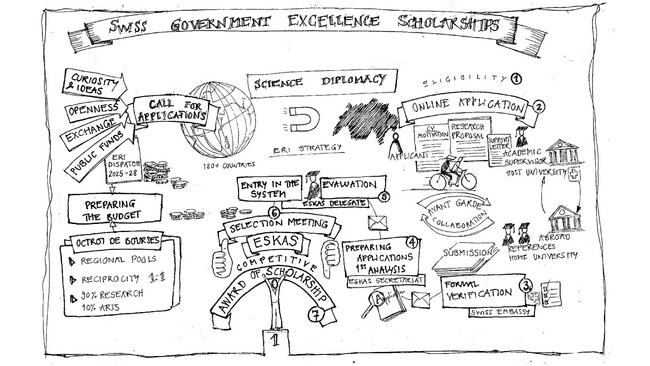 SWISS GOVERNMENT EXCELLENCE SCHOLARSHIPS
CURIOSITY
& IDEAS
OPENNESS
EXCHANGE
PUBLIC FUNDS
CALL FOR
APPLICATIONS
ERI
DISPATCH
2025-28
180+ COUNTRIES
SCIENCE DIPLOMACY
ERI STRATEGY
ELIGIBILITY 1
ONLINE APPLICATION 2
APPLICANT
CV
MOTIVATION
RESEARCH
PROPOSAL
SUPPORT
LETTER
ACADEMIC
SUPERVISOR
HOST UNIVERSITY
AVANT GARDE
COLLABORATION
ABROAD
REFERENCES
HOME UNIVERSITY
SUBMISSION
FORMAL
VERIFICATION
3
SWISS EMBASSY
PREPARING
APPLICATIONS
1ST ANALYSIS
4
ESKAS SECRETARIAT
ENTRY IN THE
SYSTEM
EVALUATION
5
ESKAS DELEGATE
6
SELECTION MEETING
ESKAS
COMPETITIVE
AWARD OF SCHOLARSHIP
7
1
PREPARING
THE BUDGET
OCTROI DE BOURSES
REGIONAL POOLS
RECIPROCITY 1:1
90% RESEARCH
10% ARTS